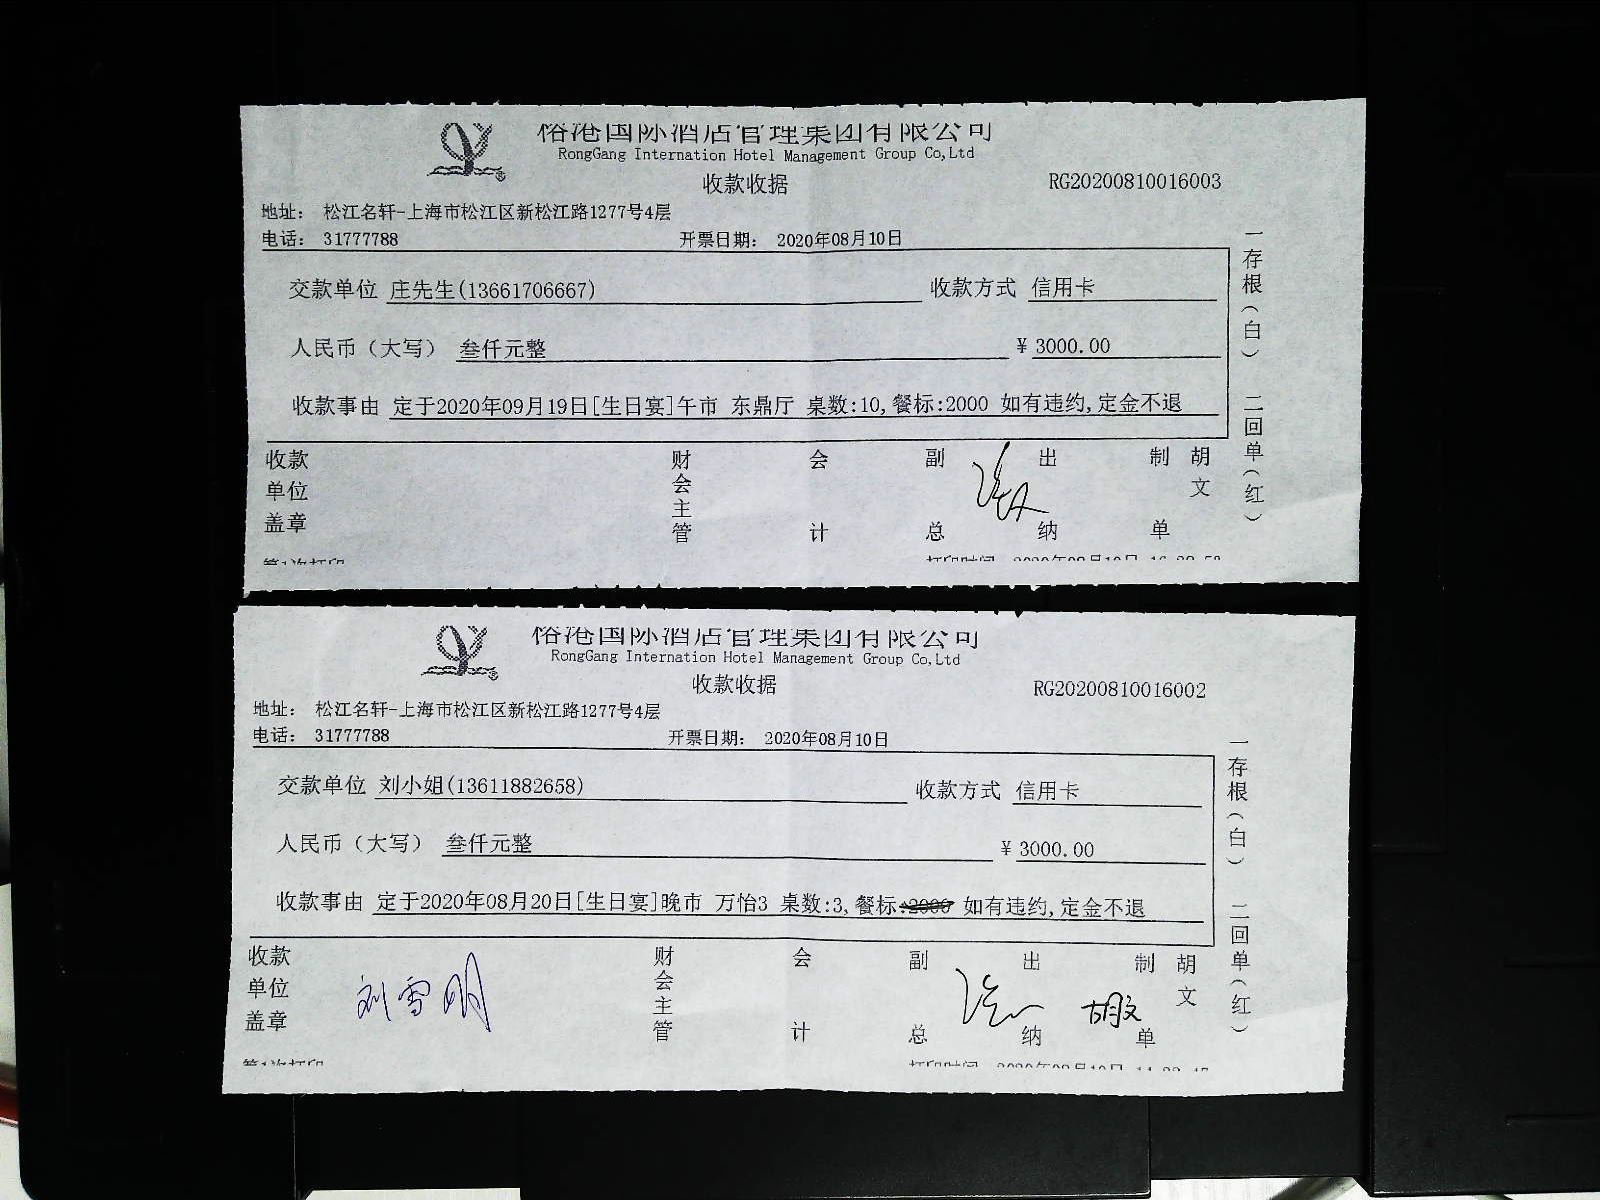 裕港国际酒店管理集团有限公司
RongGang Internation Hotel Management Group Co,Ltd
收款收据
RG20200810016003
地址： 松江名轩-上海市松江区新松江路1277号4层
电话： 31777788 开票日期： 2020年08月10日
交款单位 庄先生(13661706667) 收款方式 信用卡
人民币（大写） 叁仟元整 ¥ 3000.00
收款事由 定于2020年09月19日[生日宴]午市 东鼎厅 桌数:10,餐标:2000 如有违约,定金不退
一存根（白） 二回单（红）
收款单位盖章 财会主管 会计 副总 出纳 制单 胡文
第1次打印 打印时间 2020年08月10日
裕港国际酒店管理集团有限公司
RongGang Internation Hotel Management Group Co,Ltd
收款收据
RG20200810016002
地址： 松江名轩-上海市松江区新松江路1277号4层
电话： 31777788 开票日期： 2020年08月10日
交款单位 刘小姐(13611882658) 收款方式 信用卡
人民币（大写） 叁仟元整 ¥ 3000.00
收款事由 定于2020年08月20日[生日宴]晚市 万怡3 桌数:3,餐标:2000 如有违约,定金不退
一存根（白） 二回单（红）
收款单位盖章 刘雪明 财会主管 会计 副总 出纳 胡文 制单 胡文
第1次打印 打印时间 2020年08月10日